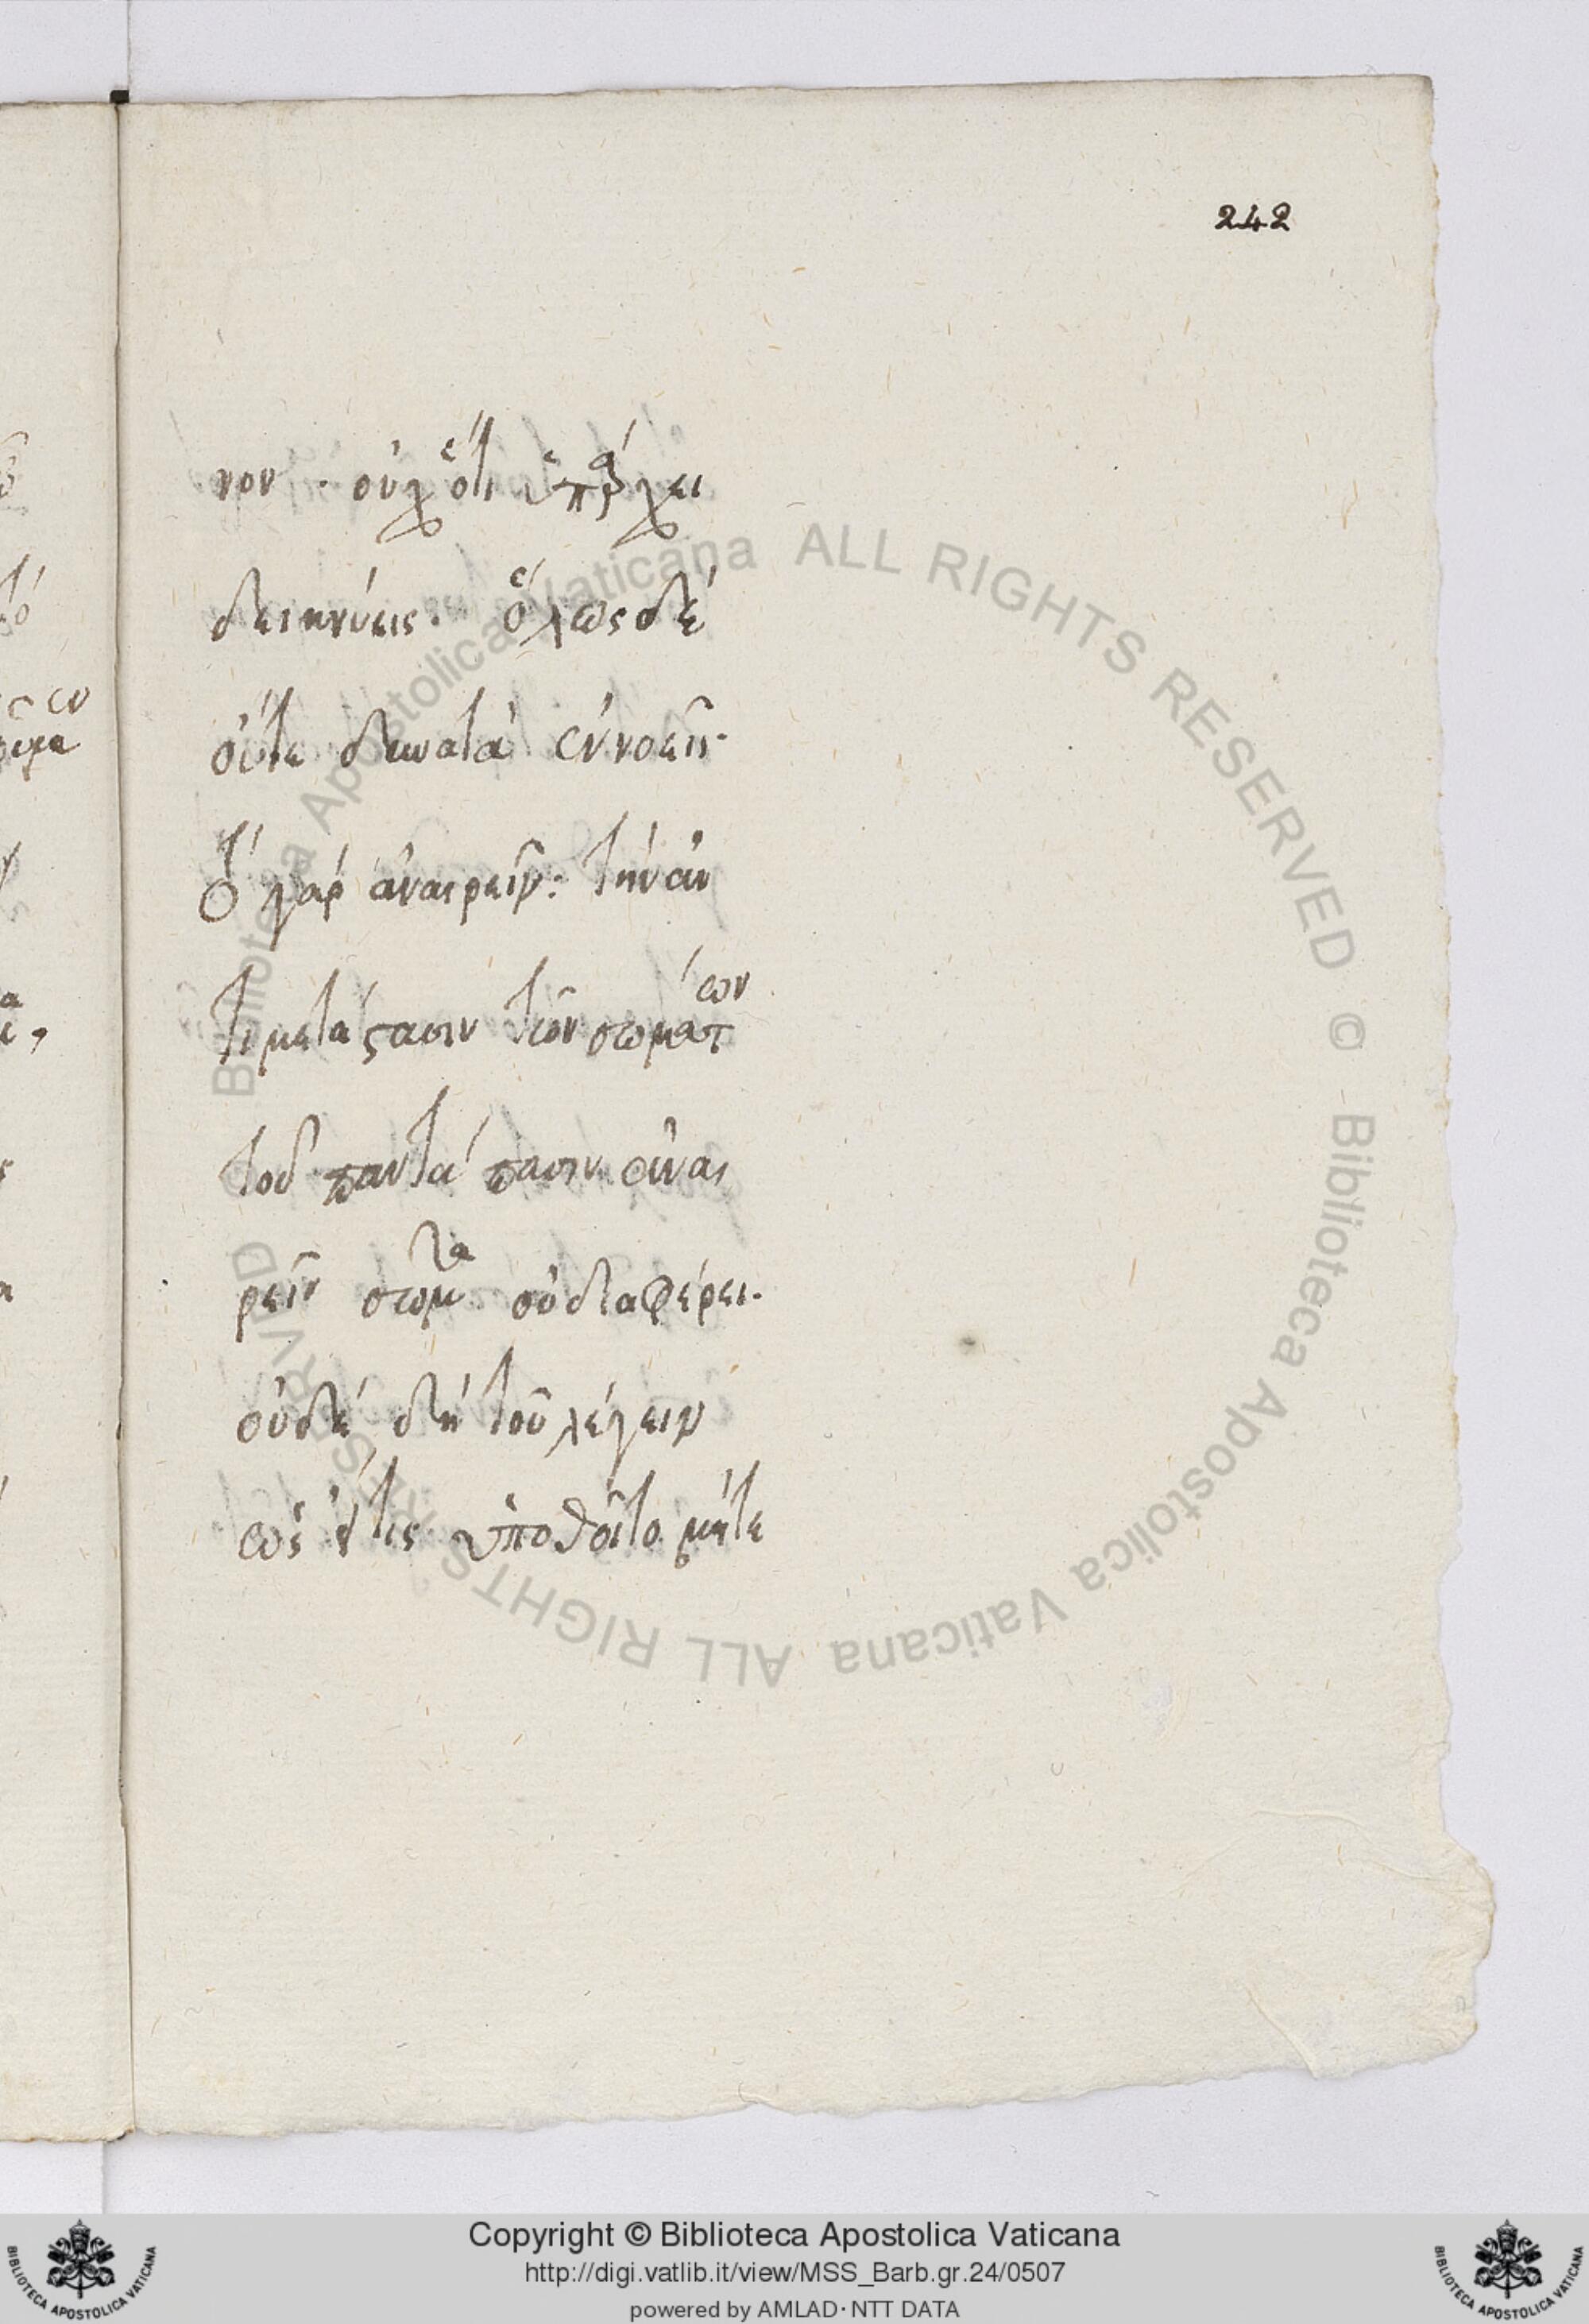 242
νον · οὐχ ὅτι ὑπάρχει
δεικνύεις · ὅλως δὲ
οὔτε δυνατὰ ἐννοεῖς·
τό γὰρ ἀναιρεῖν: τὴν ἀν
τιμετάστασιν τῶν σωμάτων
τοῦ παντάπασιν ἀναι
ρεῖν σῶμα οὐ διαφέρει.
οὐδέ δὴ τοῦ λέγειν
ὡς εἴ τις ὑπόθοιτο μήτε
Biblioteca Apostolica Vaticana ALL RIGHTS RESERVED © Biblioteca Apostolica Vaticana ALL RIGHTS RESERVED
Copyright © Biblioteca Apostolica Vaticana
http://digi.vatlib.it/view/MSS_Barb.gr.24/0507
powered by AMLAD · NTT DATA
BIBLIOTECA APOSTOLICA VATICANA
BIBLIOTECA APOSTOLICA VATICANA